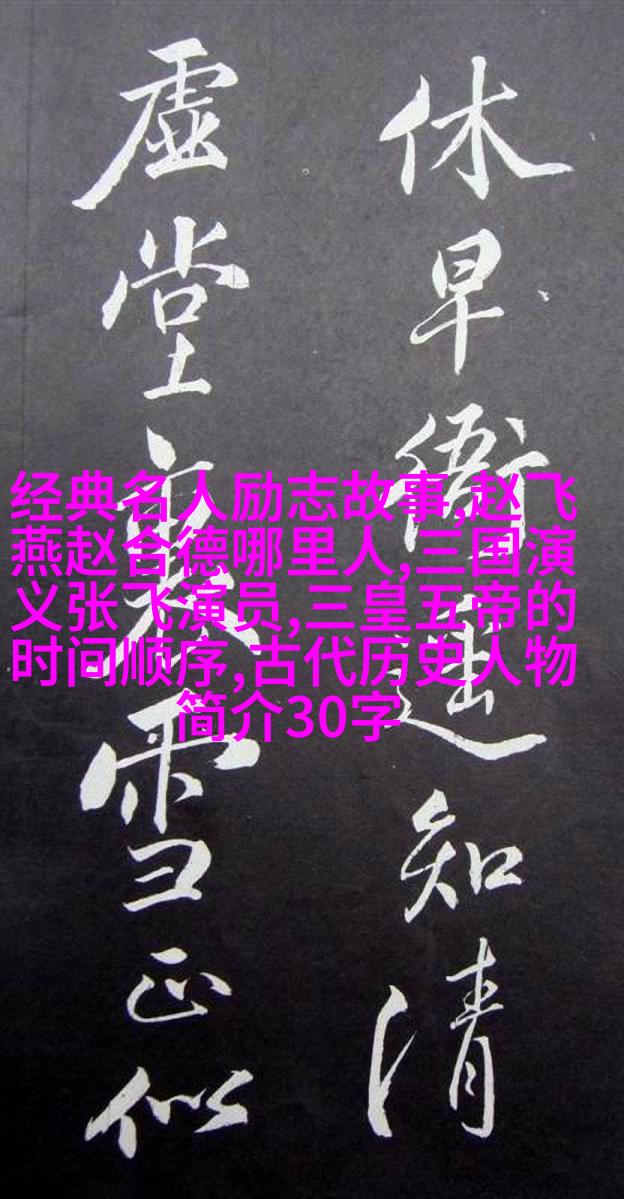 休早衙遥知清
虚堂裏雪正似
经典名人励志故事,赵飞
燕赵合德哪里人,三国演
义张飞演员,三皇五帝的
时间顺序,古代历史人物
简介30字